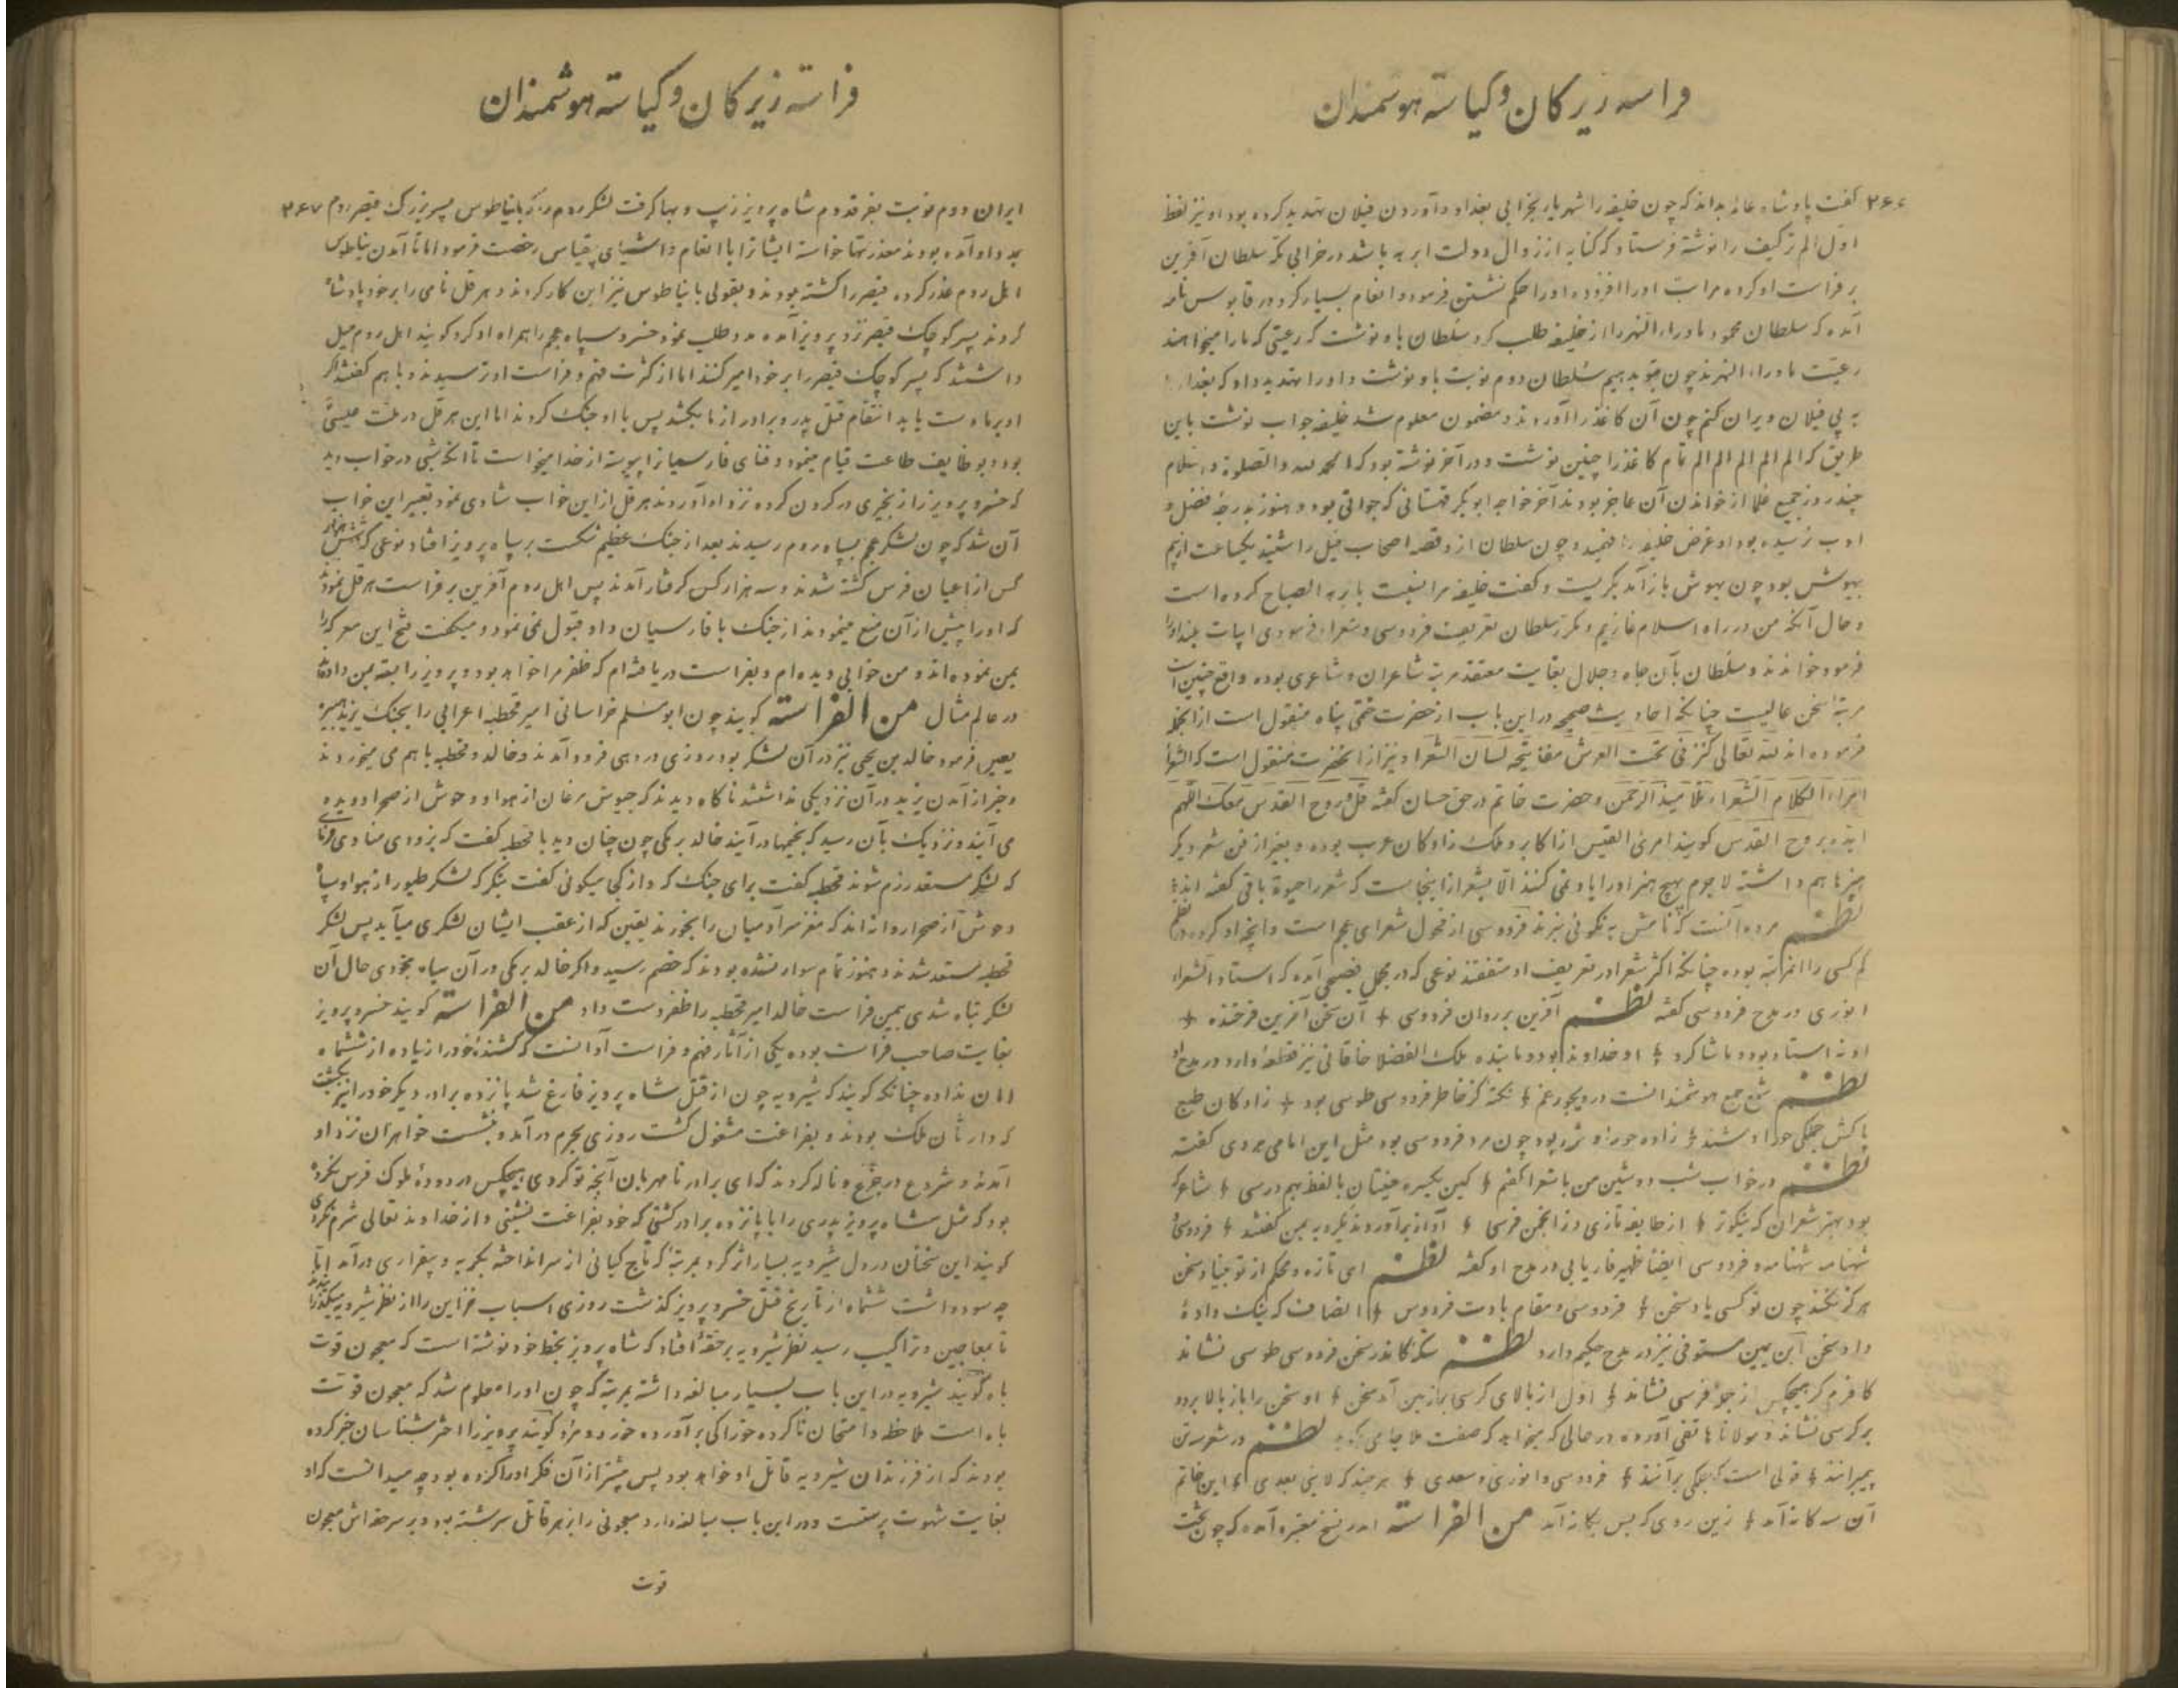 فراسه زیرکان و کیاسته هوشمندان
۲۶۶ گفت پادشاه عالم بداند که چون خلیفه را شهریار بخرابی بغداد و آوردن فیلان تهدید کرده بود او نیز لفظ
اول الم تر کیف را نوشته فرستاد که کنایه از زوال دولت ابرهه باشد در خرابی مکه سلطان آفرین
بر فراست او کرده مراتب او را افزوده او را حکم نشستن فرمود و انعام بسیار کرد و در قابوس نامه
آمده که سلطان محمود ماوراء النهر را از خلیفه طلب کرد سلطان باو نوشت که رعیتی که ما را میخواهند
رعیت ماوراء النهرند چون بتو بدهیم سلطان دوم نوبت باو نوشت و او را تهدید داد که بغداد را
به پی فیلان ویران کنم چون آن کاغذ را آوردند و مضمون معلوم شد خلیفه جواب نوشت باین
طریق که الم الم الم الم الم تمام کاغذ را چنین نوشت و در آخر نوشته بود که الحمد لله و الصلوة و السلام
چند روز جمیع علما از خواندن آن عاجز بودند آخر خواجه ابو بکر قهستانی که جوانی بود و هنوز بدرجه فضل و
ادب نرسیده بود او غرض خلیفه را فهمید و چون سلطان از و قصه اصحاب فیل را شنید یکساعت از بیم
بیهوش بود چون بهوش باز آمد بگریست و گفت خلیفه مرا نسبت بابرهه الصباح کرده است
و حال آنکه من در راه اسلام غازیم و مکرر سلطان تعریف فردوسی و شعرا فرمودی ابیات بلند او را
فرمود خواندند و سلطان بآن جاه و جلال بغایت معتقد مرتبه شاعران و شاعری بوده واقع چنین است
مرتبه سخن عالیست چنانکه احادیث صحیحه در این باب از حضرت ختمی پناه منقول است از آنجمله
فرموده اند لله تعالی کنز فی تحت العرش مفاتیحه لسان الشعرا و نیز از آنحضرت منقول است که الشعرا
امراء الکلام الشعراء تلامیذ الرحمن و حضرت خاتم در حق حسان گفته قل و روح القدس معک اللهم
ایده بروح القدس گویند امرئ القیس از اکابر و ملک زادکان عرب بوده و بغیر از فن شعر دیگر
هنرها هم داشته لاجرم بهیچ هنر او را یاد نمی کنند الا بشعر از اینجاست که شعر را حیوة باقی گفته اند
نظم مرده آنست که نامش به نکوئی نبرند فردوسی از فحول شعرای عجم است و آنچه او کرده در نظم
کم کسی را این مرتبه بوده چنانکه اکثر شعرا در تعریف او متفقند نوعی که در مجمل فصیحی آمده که استاد الشعراء
انوری در مدح فردوسی گفته نظم آفرین بر روان فردوسی + آن سخن آفرین فرخنده +
او نه استاد بود و ما شاگرد + او خداوند بود و ما بنده ملک الفضلا خاقانی نیز قطعه دارد در مدح او
نظم شمع جمع هوشمندانست در دیجور غم + نکته کز خاطر فردوسی طوسی بود + زادکان طبع
پاکش جملگی حورا وشند + زاده حورا وش بود چون مرد فردوسی بود مثل این امامی هروی گفته
نظم در خواب شب دوشین من با شعرا گفتم + کین یکسره معنیتان با لفظ بهم درسی + شاعر که
بود بهتر شعر آن که نیکوتر + از طایفه تازی وز انجمن فرسی + آواز برآوردند یکرویه بمن گفتند + فردوسی و
شهنامه شهنامه و فردوسی ایضا ظهیر فاریابی در مدح او گفته نظم ای تازه و محکم از تو بنیاد سخن
هرگز نکند چون تو کسی یاد سخن + فردوسی و مقام بادت فردوس + انصاف که نیک داده
داد سخن ابن یمین مستوفی نیز در مدح حکیم دارد نظم سکه کاندر سخن فردوسی طوسی نشاند
کافرم گر هیچکس از جمله فرسی نشاند + اول از بالای کرسی بر زمین آمد سخن + او سخن را باز بالا برد و
بر کرسی نشاند و مولانا هاتفی آورده در حالی که میخواهد که صفت ملا جامی کند نظم در شعر سه تن
پیمبرانند + قولی است که جملگی برآنند + فردوسی و انوری و سعدی + هر چند که لا نبی بعدی + این خاتم
آن سه کانه آمد + زین روی که بس یگانه آمد من الفراسة در نسخ معتبره آمده که چون تخت
فراسته زیرکان و کیاسته هوشمندان
ایران دوم نوبت بفر قدوم شاه پرویز زیب و بها گرفت لشکر روم را که با نیاطوس پسر بزرگ قیصر روم ۲۶۷
بمدد او آمده بودند معذرتها خواسته ایشانرا با انعام و اشیای بیقیاس رخصت فرمود اما تا آمدن نیاطوس
اهل روم غدر کرده قیصر را کشته بودند و بقولی با نیاطوس نیز این کار کردند و هرقل نامی را بر خود پادشاه
کردند پسر کوچک قیصر نزد پرویز آمده مدد طلب نمود خسرو سپاه عجم را همراه او کرد گویند اهل روم میل
داشتند که پسر کوچک قیصر را بر خود امیر کنند اما از کثرت فهم و فراست او ترسیدند و با هم گفتند اگر
او بر ما دست یابد انتقام قتل پدر و برادر از ما بکشد پس با او جنک کردند اما این هرقل در ملت عیسی
بود و بوظایف طاعت قیام مینمود و فنای فارسیانرا پیوسته از خدا میخواست تا آنکه شبی در خواب دید
که خسرو پرویز را زنجیری در گردن کرده نزد او آوردند هرقل از این خواب شادی نمود تعبیر این خواب
آن شد که چون لشکر عجم بسپاه روم رسیدند بعد از جنک عظیم شکست بر سپاه پرویز افتاد نوعی که شش هزار
کس از اعیان فرس کشته شدند و سه هزار کس گرفتار آمدند پس اهل روم آفرین بر فراست هرقل نمودند
که او را پیش از آن منع مینمودند از جنک با فارسیان و او قبول نمی نمود و میگفت فتح این معرکه را
بمن نموده اند و من خوابی دیده ام و بفراست دریافته ام که ظفر مرا خواهد بود و پرویز را بسته بمن دادند
در عالم مثال من الفراسة گویند چون ابو مسلم خراسانی امیر قحطبه اعرابی را بجنک یزید هبیره
تعیین فرمود خالد بن یحیی نیز در آن لشکر بود روزی در دهی فرود آمدند و خالد و قحطبه با هم می خوردند
و خبر از آمدن یزید در آن نزدیکی نداشتند ناگاه دیدند که جیوش مرغان از هوا و وحوش از صحرا دویده
می آیند و نزدیک بآن رسید که بخیمها در آیند خالد برمکی چون چنان دید با قحطبه گفت که بزودی منادی فرمای
که لشکر مستعد رزم شوند قحطبه گفت برای جنک که و از کجا میگوئی گفت بنگر که لشکر طیور از هوا و سپاه
وحوش از صحرا روانه اند که مغز سر آدمیان را بخورند یقین که از عقب ایشان لشکری میآید پس لشکر
قحطبه مستعد شدند و هنوز تمام سوار نشده بودند که خصم رسید و اگر خالد برمکی در آن سپاه نبودی حال آن
لشکر تباه شدی بیمن فراست خالد امیر قحطبه را ظفر دست داد من الفراسة گویند خسرو پرویز
بغایت صاحب فراست بوده یکی از آثار فهم و فراست او آنست که کشنده خود را زیاده از ششماه
امان نداده چنانکه گویند که شیرویه چون از قتل شاه پرویز فارغ شد پانزده برادر دیگر خود را نیز بکشت
که وارثان ملک بودند و بفراغت مشغول گشت روزی بحرم درآمد و بنشست خواهران نزد او
آمدند و شروع در جزع و ناله کردند که ای برادر نامهربان آنچه تو کردی هیچکس در دوده ملوک فرس نکرده
بود که مثل شاه پرویز پدری را با پانزده برادر کشتی که خود بفراغت نشینی و از خداوند تعالی شرم نکردی
گویند این سخنان در دل شیرویه بسیار اثر کرد بمرتبه که تاج کیانی از سر انداخته بگریه و بیقراری درآمد اما
چه سود داشت ششماه از تاریخ قتل خسرو پرویز گذشت روزی اسباب خزاین را از نظر شیرویه میگذراندند
تا بمعاجین و تراکیب رسید نظر شیرویه بر حقه افتاد که شاه پرویز بخط خود نوشته است که معجون قوت
باه گویند شیرویه در این باب بسیار مبالغه داشته بمرتبه که چون او را معلوم شد که معجون قوت
باه است ملاحظه و امتحان ناکرده خوراکی برآورده خورد و مرد گویند پرویز را اخترشناسان خبر کرده
بودند که از فرزندان شیرویه قاتل او خواهد بود پس پیشتر از آن فکر او را کرده بود چه میدانست که او
بغایت شهوت پرستست و در این باب مبالغه دارد معجونی را بزهر قاتل سرشته بود و بر سر حقه اش معجون
قوت